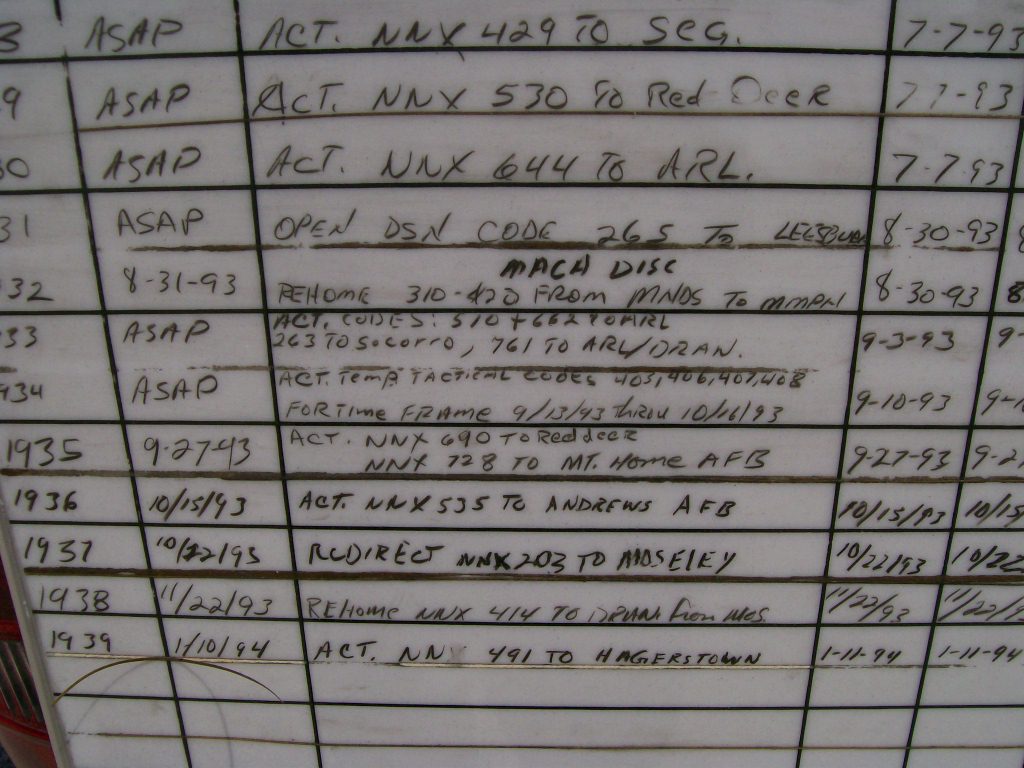 3 ASAP ACT. NNX 429 TO SEG. 7-7-93
9 ASAP ACT. NNX 530 TO Red Deer 7-7-93
30 ASAP ACT. NNX 644 TO ARL. 7-7-93
31 ASAP OPEN DSN CODE 265 TO LEESBURG 8-30-93 8
MACH DISC
932 8-31-93 REHOME 310-420 FROM MNDS TO MMPN 8-30-93 8
ACT. CODES: 510 + 662 TO ARL
933 ASAP 263 TO SOCORRO, 761 TO ARL/DRAN. 9-3-93 9-
ACT. Temp TACTICAL CODES 405,406,407,408
934 ASAP FOR TIME FRAME 9/13/93 THRU 10/16/93 9-10-93 9-1
ACT. NNX 690 TO Red deer
1935 9-27-93 NNX 728 TO MT. Home AFB 9-27-93 9-2
1936 10/15/93 ACT. NNX 535 TO ANDREWS AFB 10/15/93 10/15
1937 10/22/93 REDIRECT NNX 203 TO MOSELEY 10/22/93 10/22
1938 11/22/93 REHOME NNX 414 TO DRAN From MOS 11/22/93 11/22/9
1939 1/10/94 ACT. NNX 491 TO HAGERSTOWN 1-11-94 1-11-94